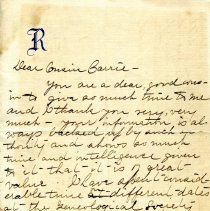 R
Dear Cousin Carrie -
You are a dear, good cous-
in to give so much time to me
and I thank you very, very
much - your information is al-
ways backed up by such au-
thority and shows so much
time and intelligence given
to it - that it is of great
value. I have spent consid-
erable time at different dates
at the Genealogical Society